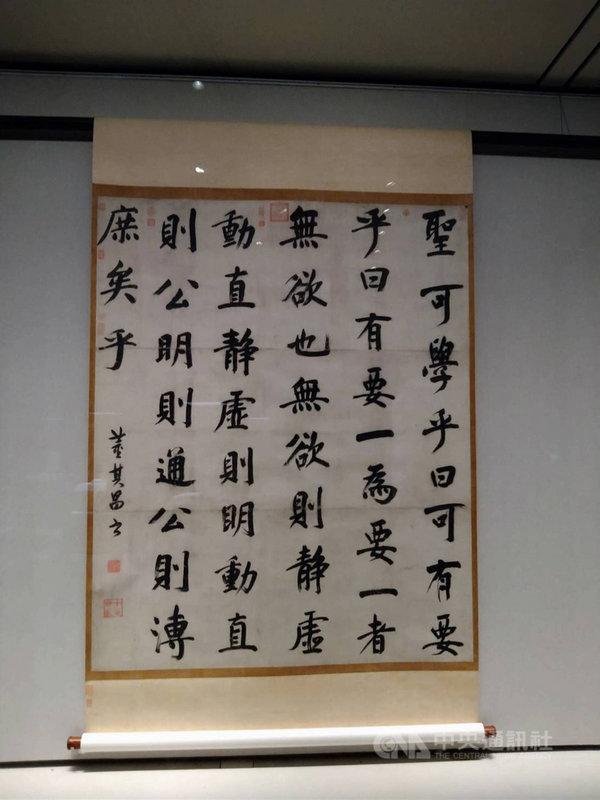 聖可學乎曰可有要
乎曰有要一為要一者
無欲也無欲則靜虛
動直靜虛則明動直
則公明則通公則溥
庶矣乎
董其昌書
CNA 中央通訊社
THE CENTRAL